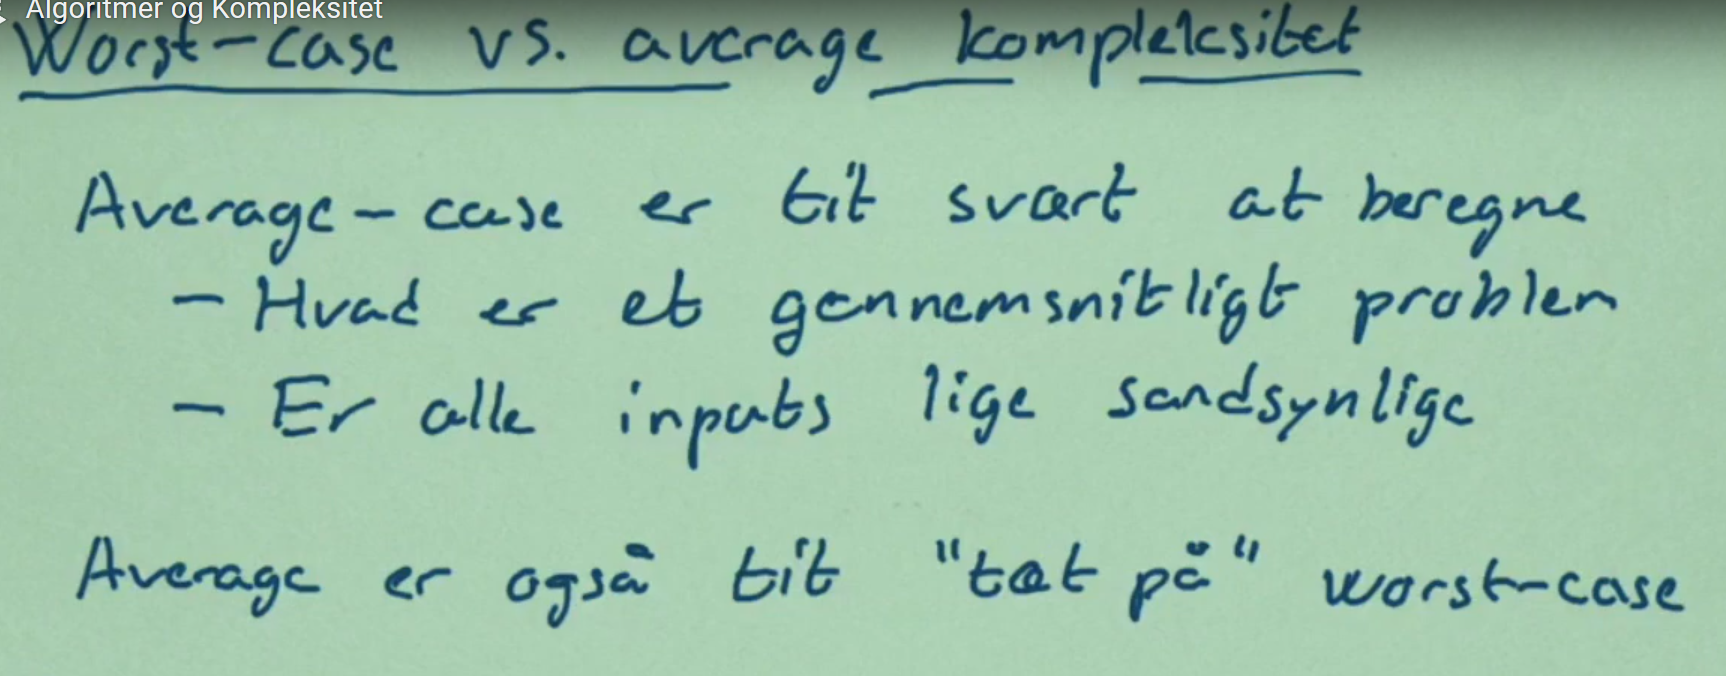 Algoritmer og Kompleksitet
Worst-case vs. average kompleksitet
Average-case er tit svært at beregne
- Hvad er et gennemsnitligt problem
- Er alle inputs lige sandsynlige
Average er også tit "tæt på" worst-case